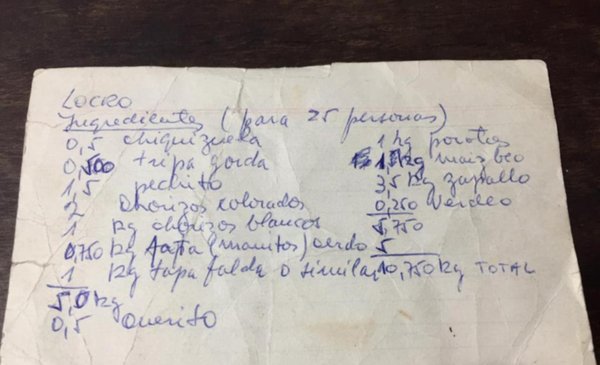 LOCRO
Ingredientes (para 25 personas)
0,5 chiquizuela
0,500 tripa gorda
1,5 pechito
2 chorizos colorados
1 kg chorizos blancos
0,750 kg pata (manitos) cerdo
1 kg tapa falda o similar
5,0 kg
0,5 cuerito
1 kg porotos
kg maiz bco
3,5 kg zapallo
0,250 verdeo
5,750
5
10,750 kg TOTAL